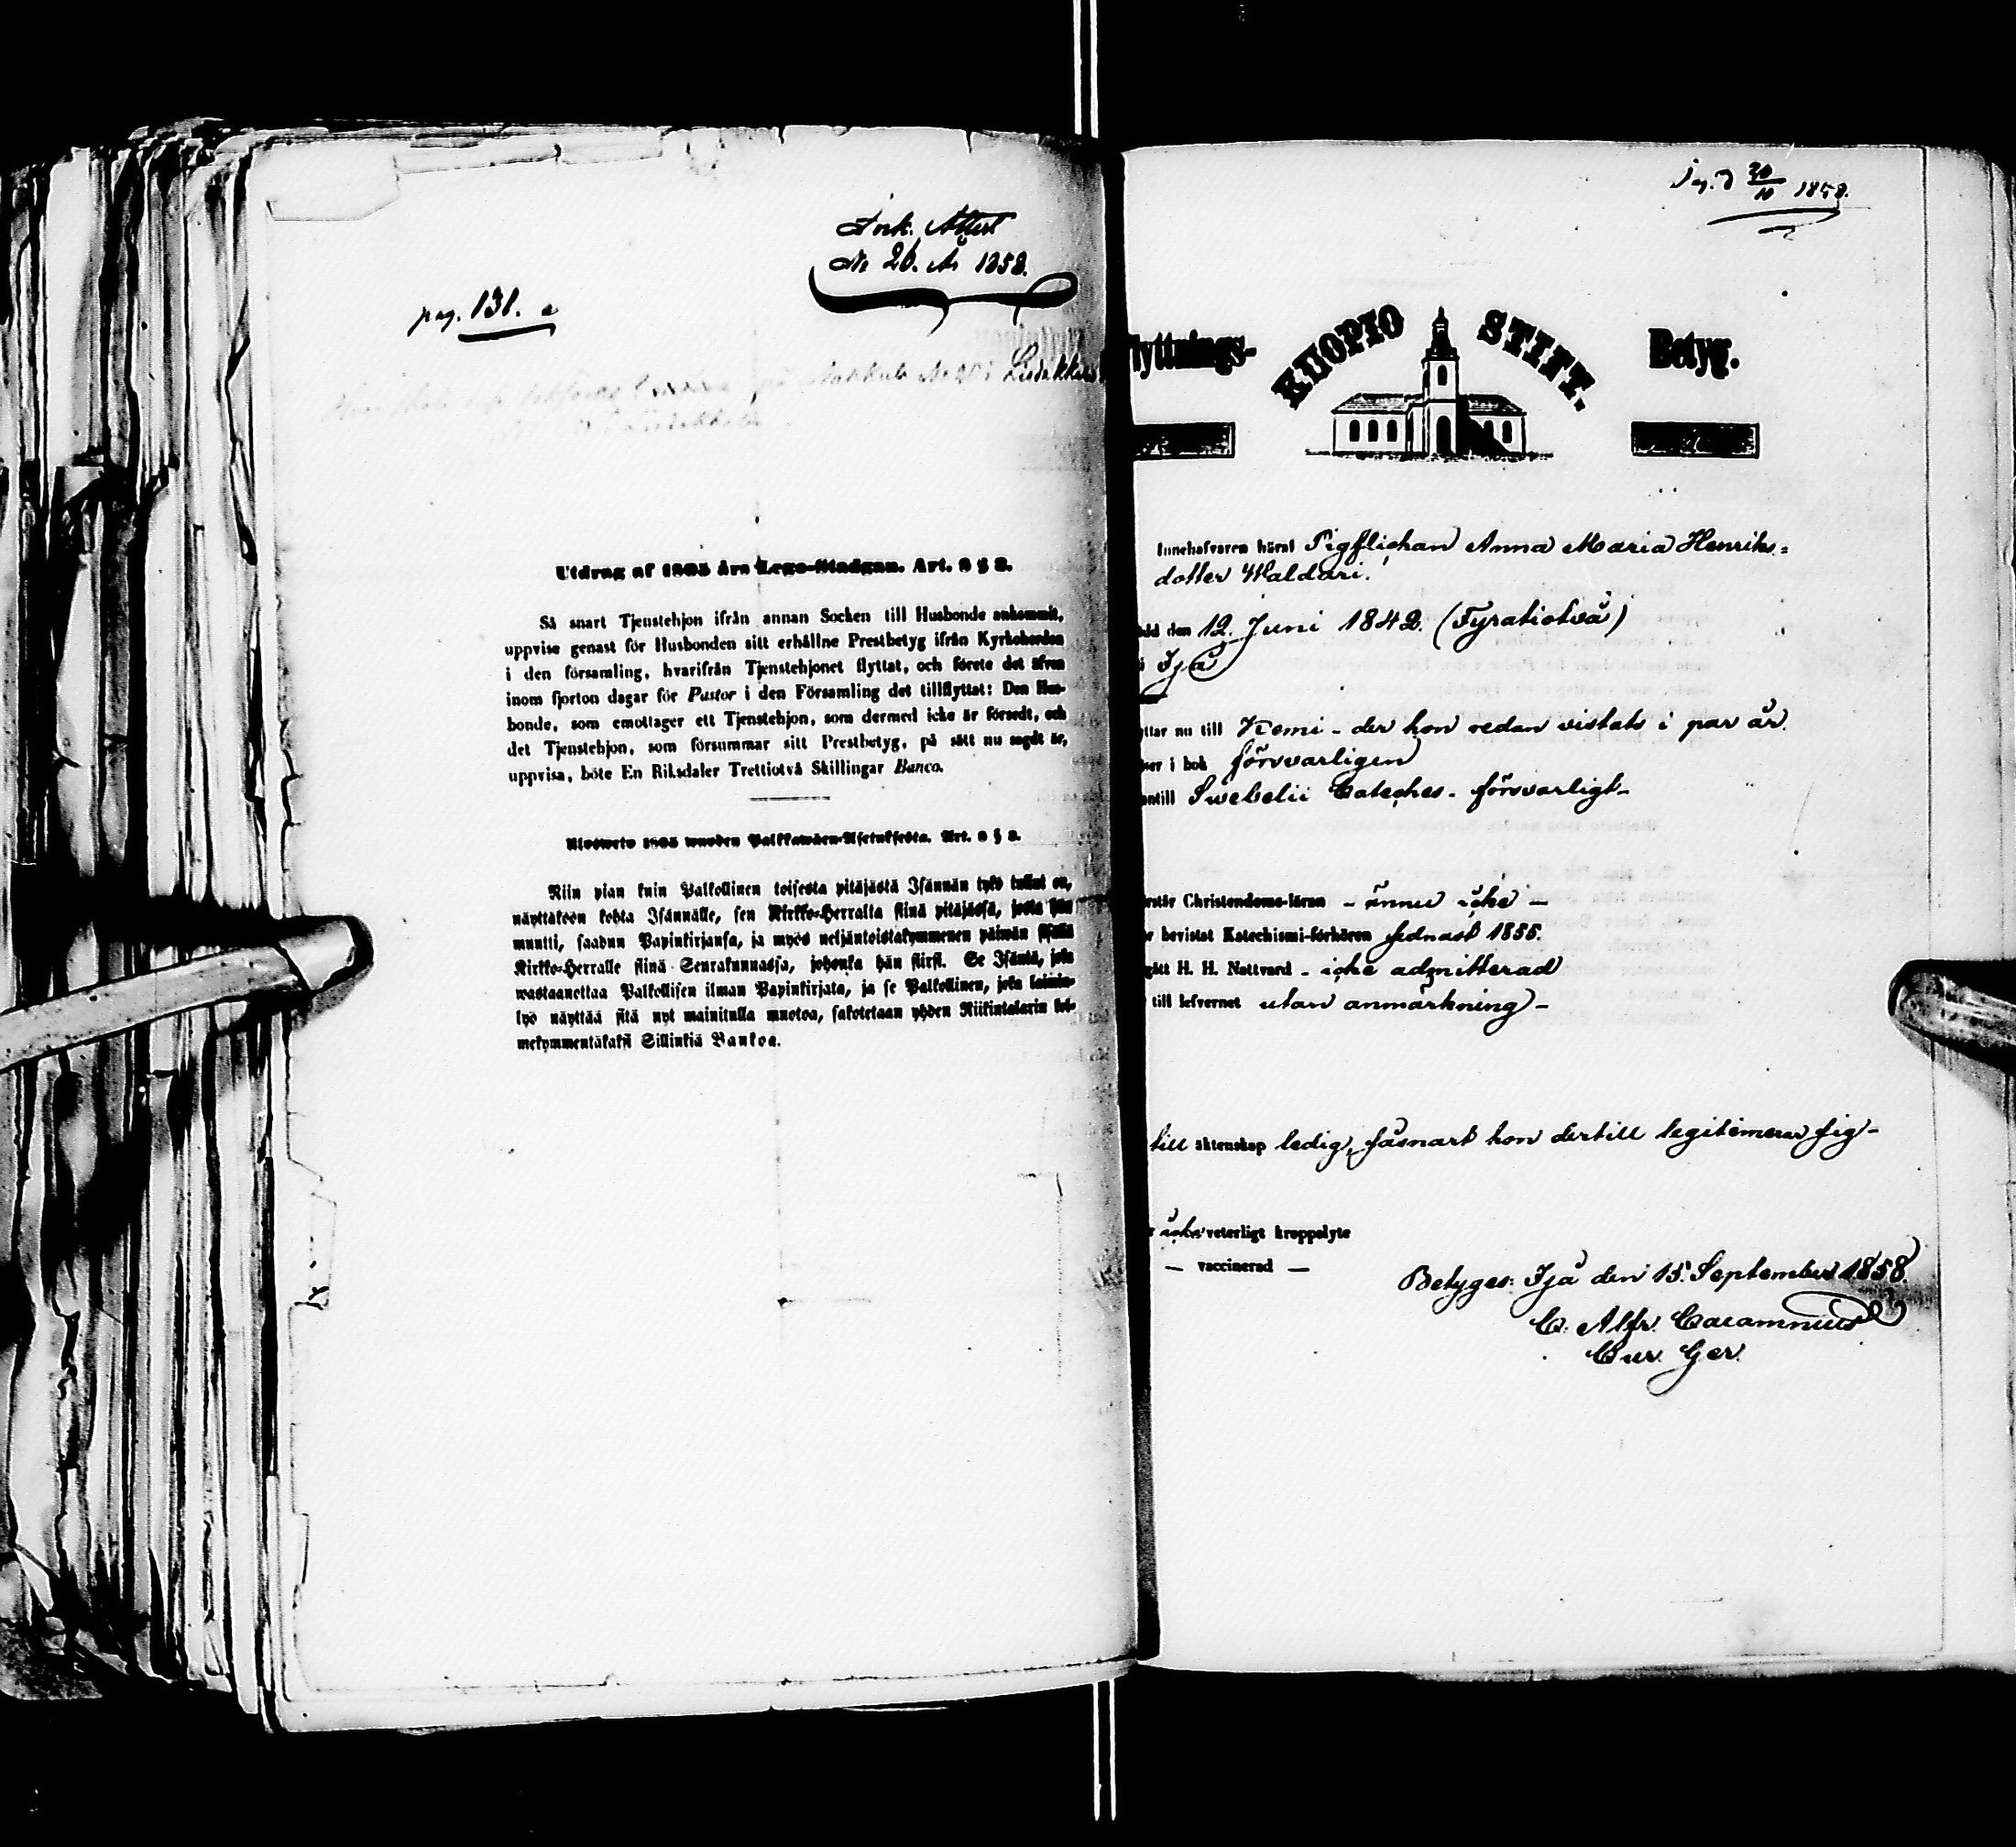 Ink. Attest
No 26. År 1858.
pag. 131.
No 20 i
Utdrag af 1805 års Lego-Stadgan. Art. 2 § 2.
Så snart Tjenstehjon ifrån annan Socken till Husbonde ankommit,
uppvise genast för Husbonden sitt erhållne Prestbetyg ifrån Kyrkoherden
i den församling, hvarifrån Tjenstehjonet flyttat, och förete det äfven
inom fjorton dagar för Pastor i den Församling det tillflyttat: Den Hus-
bonde, som emottager ett Tjenstehjon, som dermed icke är försedt, och
det Tjenstehjon, som försummar sitt Prestbetyg, på sätt nu sagdt är,
uppvisa, böte En Riksdaler Trettiotvå Skillingar Banco.
Ulosweto 1805 wuoden Palkkawäen-Asetuksesta. Art. 2 § 2.
Niin pian kuin Palkollinen toisesta pitäjästä Isännän tykö tullut on,
näyttäköön kohta Isännälle, sen Kirkko-Herralta siinä pitäjässä, josta hän
muutti, saadun Papinkirjansa, ja myös neljäntoistakymmenen päiwän sisällä
Kirkko-Herralle siinä Seurakunnassa, johonka hän siirsi. Se Isäntä, joka
wastaanottaa Palkollisen ilman Papinkirjata, ja se Palkollinen, joka laimin-
lyö näyttää sitä nyt mainitulla muotoa, sakotetaan yhden Riikintalarin kol-
mekymmentäkaksi Sillinkiä Bankoa.
Ing. d 30/10 1858.
lyttnings- KUOPIO STIFT. Betyg.
Innehafvaren häraf Pigflickan Anna Maria Henriks=
dotter Waldari.
dd den 12. Juni 1842. (Fyratiotvå)
i Ijå
yttar nu till Kemi - der hon redan vistats i par år.
ser i bok försvarligen
antill Swebelii Cateches. försvarligt-
rstår Christendoms-läran - ännu icke -
r bevistat Katechismi-förhören sednast 1855.
gått H. H. Nattvard - icke admitterad
till lefvernet utan anmärkning -
till äktenskap ledig, såsnart hon dertill legitimerar sig -
r icke veterligt kroppslyte
- vaccinerad -
Betygas: Ijå den 15. September 1858.
C. Alfr. Cacamnius
Cur. Ger.